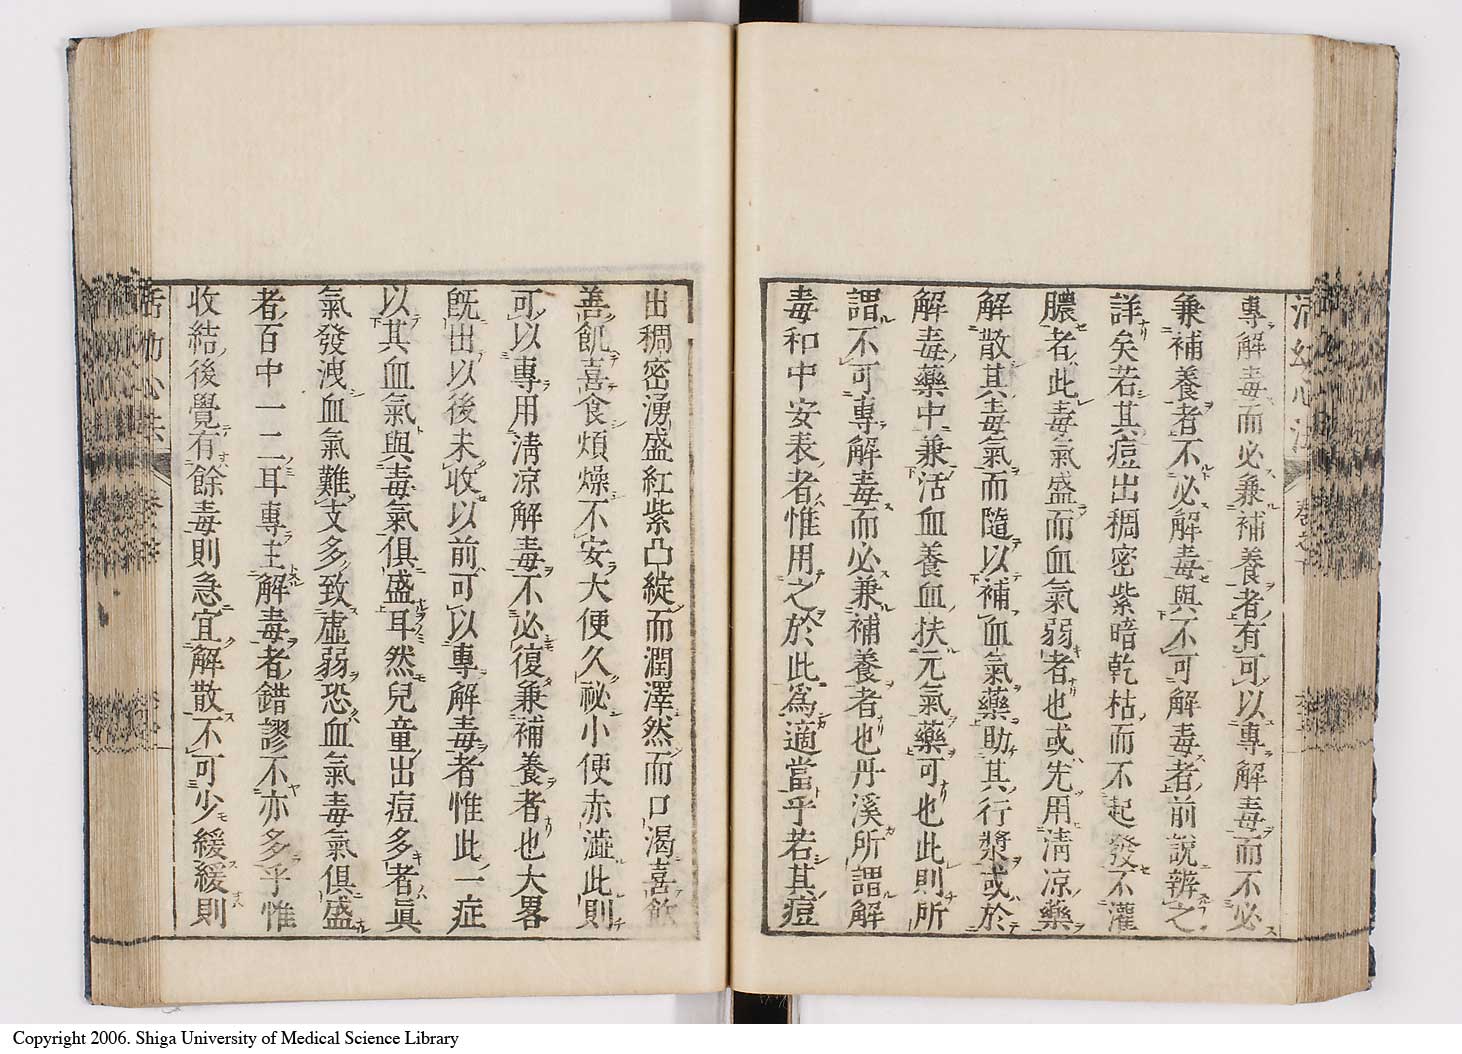 專解毒而必兼補養者有可以專解毒而不必
兼補養者不必解毒與不可解毒者前說辨之
詳矣若其痘出稠密紫暗乾枯而不起發不灌
膿者此毒氣盛而血氣弱者也或先用淸凉藥
解散其毒氣而隨以補血氣藥助其行漿或於
解毒藥中兼活血養血扶元氣藥可也此則所
謂不可專解毒而必兼補養者也丹溪所謂解
毒和中安表者惟用之於此爲適當乎若其痘
出稠密湧盛紅紫凸綻而潤澤然而口渴喜飮
善飢喜食煩燥不安大便久祕小便赤澁此則
可以專用淸凉解毒不必復兼補養者也大畧
旣出以後未收以前可以專解毒者惟此一症
以其血氣與毒氣俱盛耳然兒童出痘多者眞
氣發洩血氣難支多致虛弱恐血氣毒氣俱盛
者百中一二耳專主解毒者錯謬不亦多乎惟
收結後覺有餘毒則急宜解散不可少緩緩則
活幼心法
Copyright 2006. Shiga University of Medical Science Library